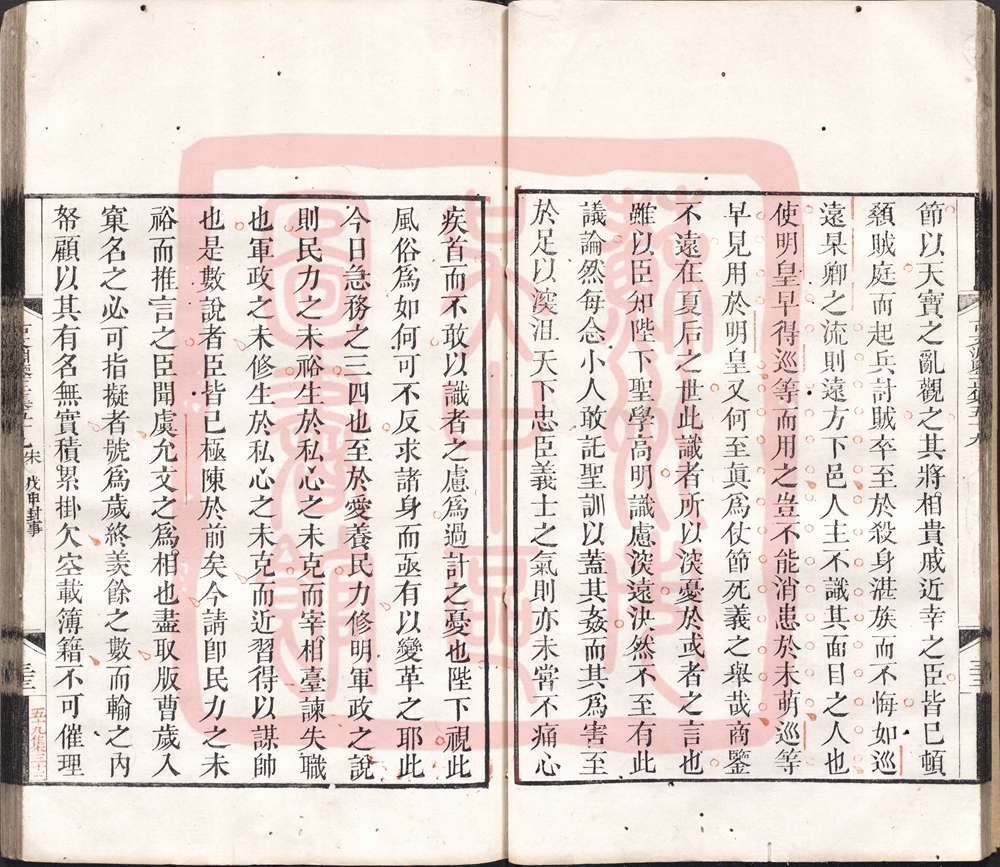 節以天寶之亂觀之其將相貴戚近幸之臣皆已頓
顙賊庭而起兵討賊卒至於殺身湛族而不悔如巡
遠杲卿之流則遠方下邑人主不識其面目之人也
使明皇早得巡等而用之豈不能消患於未萌巡等
早見用於明皇又何至眞爲仗節死義之舉哉商鑒
不遠在夏后之世此識者所以深憂於或者之言也
雖以臣知陛下聖學高明識慮深遠決然不至有此
議論然每念小人敢託聖訓以蓋其姦而其爲害至
於足以深沮天下忠臣義士之氣則亦未嘗不痛心
疾首而不敢以識者之慮爲過計之憂也陛下視此
風俗爲如何可不反求諸身而亟有以變革之耶此
今日急務之三四也至於愛養民力修明軍政之說
則民力之未裕生於私心之未克而宰相臺諫失職
也軍政之未修生於私心之未克而近習得以謀帥
也是數說者臣皆已極陳於前矣今請卽民力之未
裕而推言之臣聞虞允文之爲相也盡取版曹歲入
窠名之必可指擬者號爲歲終羨餘之數而輸之內
帑顧以其有名無實積累掛欠空載簿籍不可催理
朱 戊申封事
三十三
五十九集三十三